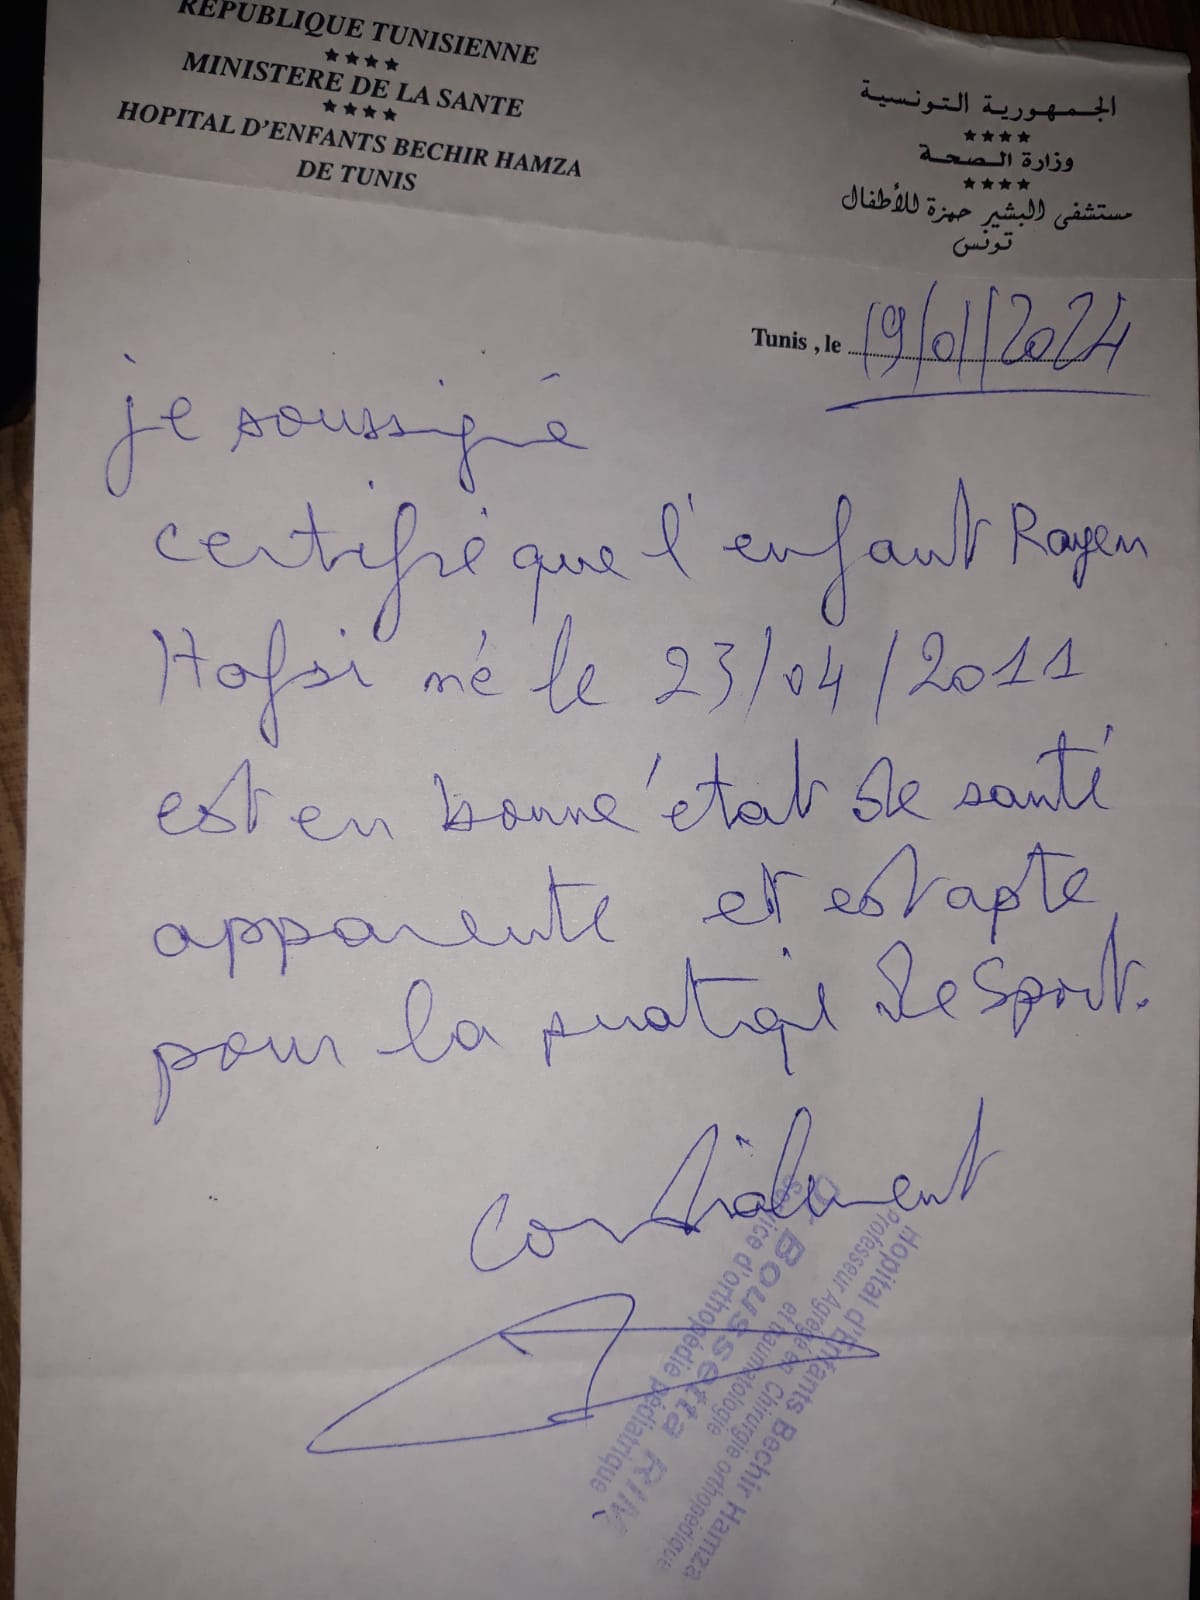 REPUBLIQUE TUNISIENNE
★★★★
MINISTERE DE LA SANTE
★★★★
HOPITAL D'ENFANTS BECHIR HAMZA
DE TUNIS
الجمهورية التونسية
★★★★
وزارة الصحة
★★★★
مستشفى البشير حمزة للأطفال
تونس
Tunis , le 19/01/2024
je soussigné
certifié que l'enfant Rayen
Hofsi né le 23/04/2011
est en bonne état de santé
apparente et est apte
pour la pratiqe de Sport.
cordialement
Hopital d'Enfants Bechir Hamza
Professeur Agrégé en Chirurgie orthopédique
et traumatologie
Dr Boussetta RIM
Service d'orthopédie pédiatrique